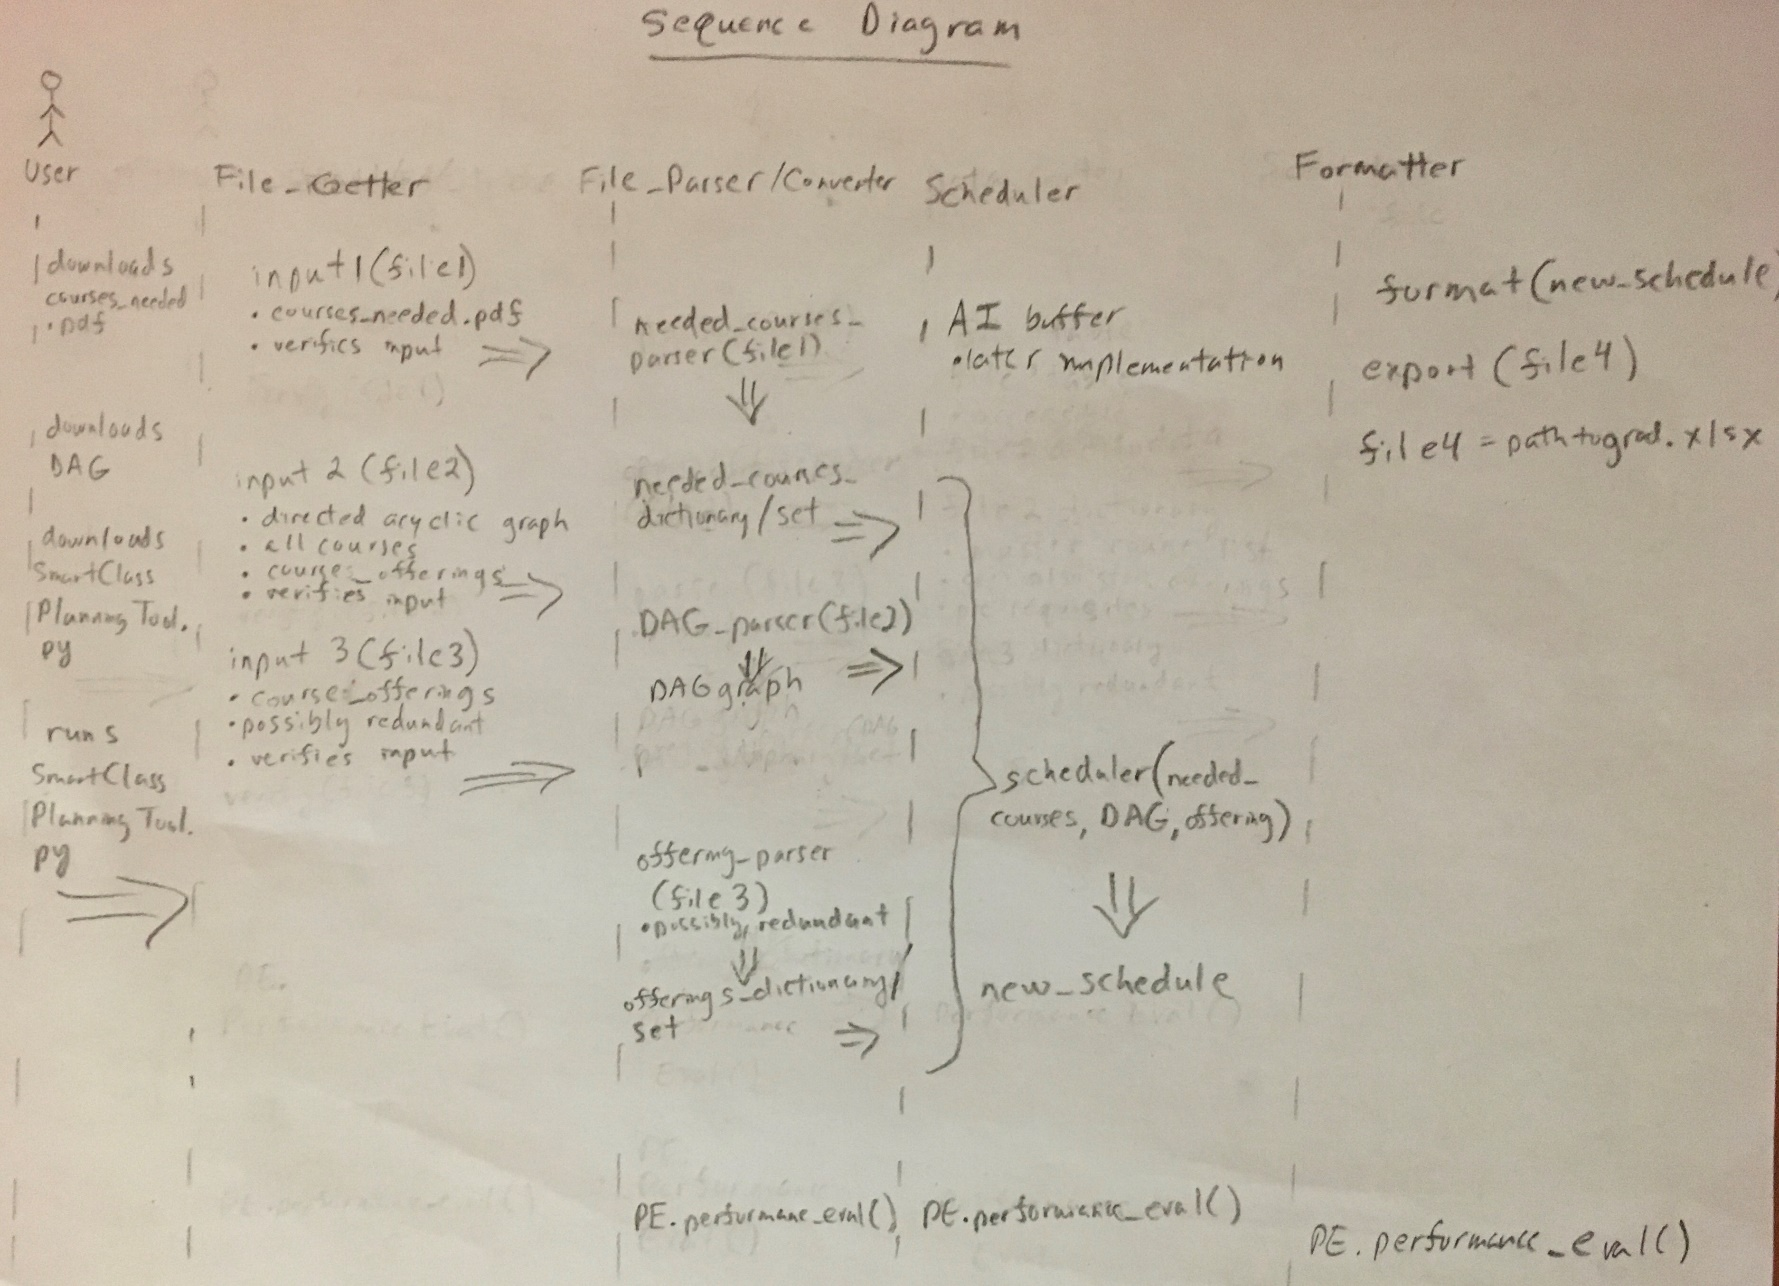 Sequence Diagram
User
File_Getter
File_Parser/Converter
Scheduler
Formatter
downloads
courses_needed
.pdf
downloads
DAG
downloads
SmartClass
Planning Tool.
py
runs
SmartClass
Planning Tool.
py
input1(file1)
• courses_needed.pdf
• verifies input
input 2 (file2)
• directed acyclic graph
• all courses
• course_offerings
• verifies input
input 3(file3)
• course_offerings
• possibly redundant
• verifies input
needed_courses_
parser(file1)
needed_courses_
dictionary/set
DAG_parser(file2)
DAG graph
offering_parser
(file3)
• possibly redundant
offerings_dictionary/
set
PE.performanc_eval()
AI buffer
• later implementation
scheduler(needed_
courses, DAG, offering)
new_schedule
PE.performance_eval()
format(new_schedule)
export(file4)
file4 = pathtograd.xlsx
PE.performance_eval()